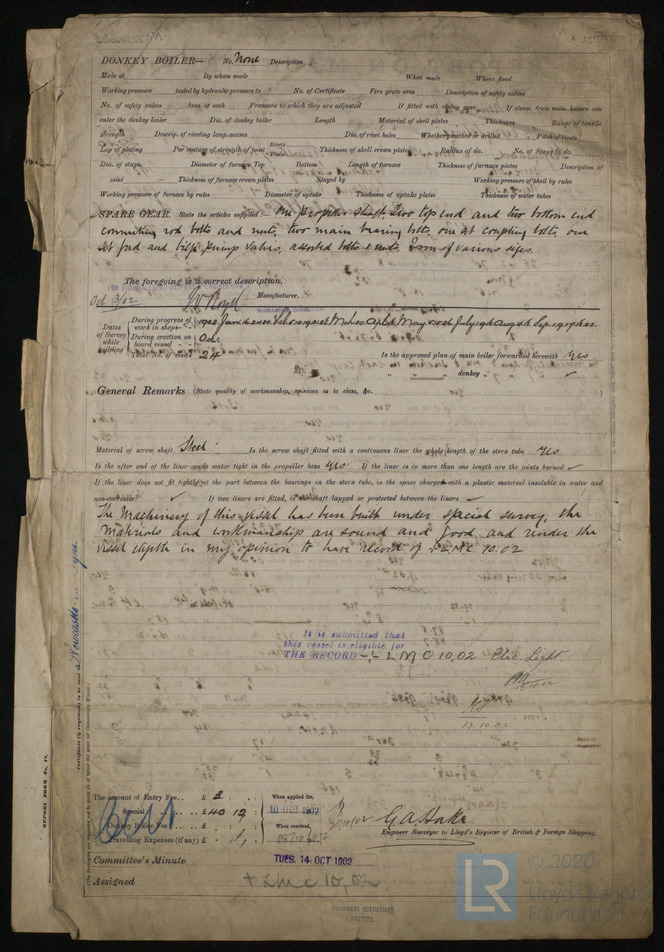 DONKEY BOILER— No. None Description
Made at By whom made When made Where fixed
Working pressure tested by hydraulic pressure to No. of Certificate Fire grate area Description of safety valves
No. of safety valves Area of each Pressure to which they are adjusted If fitted with easing gear If steam from main boilers can
enter the donkey boiler Dia. of donkey boiler Length Material of shell plates Thickness Range of tensile
strength Descrip. of riveting long. seams Dia. of rivet holes Whether punched or drilled Pitch of rivets
Lap of plating Per centage of strength of joint Rivets Plates Thickness of shell crown plates Radius of do. No. of Stays to do.
Dia. of stays. Diameter of furnace Top Bottom Length of furnace Thickness of furnace plates Description of
joint Thickness of furnace crown plates Stayed by Working pressure of shell by rules
Working pressure of furnace by rules Diameter of uptake Thickness of uptake plates Thickness of water tubes
SPARE GEAR. State the articles supplied:— One propeller shaft, Two top end and two bottom end
connecting rod bolts and nuts, two main bearing bolts, one set coupling bolts, one
set feed and bilge pump valves, assorted bolts & nuts, Iron of various sizes.
The foregoing is a correct description,
Oct 3/02 Manufacturer.
Dates of Survey while building
During progress of work in shops - -
During erection on board vessel - - Oct.
Total No. of visits 24 Is the approved plan of main boiler forwarded herewith Yes
" " " donkey " " " ✓
General Remarks (State quality of workmanship, opinions as to class, &c.
Material of screw shaft Steel Is the screw shaft fitted with a continuous liner the whole length of the stern tube Yes
Is the after end of the liner made water tight in the propeller boss Yes If the liner is in more than one length are the joints burned ✓
If the liner does not fit tightly at the part between the bearings in the stern tube, is the space charged with a plastic material insoluble in water and
non-corrosive ✓ If two liners are fitted, is the shaft lapped or protected between the liners ✓
The Machinery of this vessel has been built under special survey, the
Materials and workmanship are sound and good, and render the
vessel eligible in my opinion to have record of + L.M.C. 10.02
It is submitted that
this vessel is eligible for
THE RECORD + L M C 10,02 Elec. Light.
13.10.02
Newcastle-on-Tyne.
Certificate (if required) to be sent to
REPORT FORM No. 10.
The amount of Entry Fee . . £ 2 : : When applied for,
Special . . £ 40 12 : 10 OCT 1902
Donkey Boiler Fee . . £ : : When received,
Travelling Expenses (if any) £ :
Engineer Surveyor to Lloyd's Register of British & Foreign Shipping.
Committee's Minute TUES. 14 OCT 1902
Assigned + L M C 10,02
MACHINERY CERTIFICATE
WRITTEN.
LR
© 2020
Lloyd's Register
Foundation